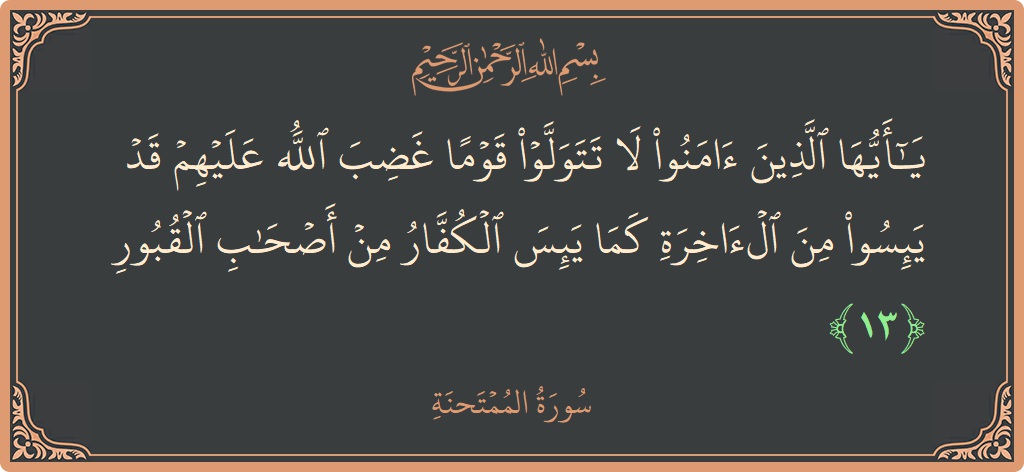 بِسْمِ اللَّهِ الرَّحْمَٰنِ الرَّحِيمِ
يَـٰٓأَيُّهَا ٱلَّذِينَ ءَامَنُوا۟ لَا تَتَوَلَّوْا۟ قَوْمًا غَضِبَ ٱللَّهُ عَلَيْهِمْ قَدْ
يَئِسُوا۟ مِنَ ٱلْءَاخِرَةِ كَمَا يَئِسَ ٱلْكُفَّارُ مِنْ أَصْحَـٰبِ ٱلْقُبُورِ
﴿١٣﴾
سُورَةُ المُمْتَحنَةِ